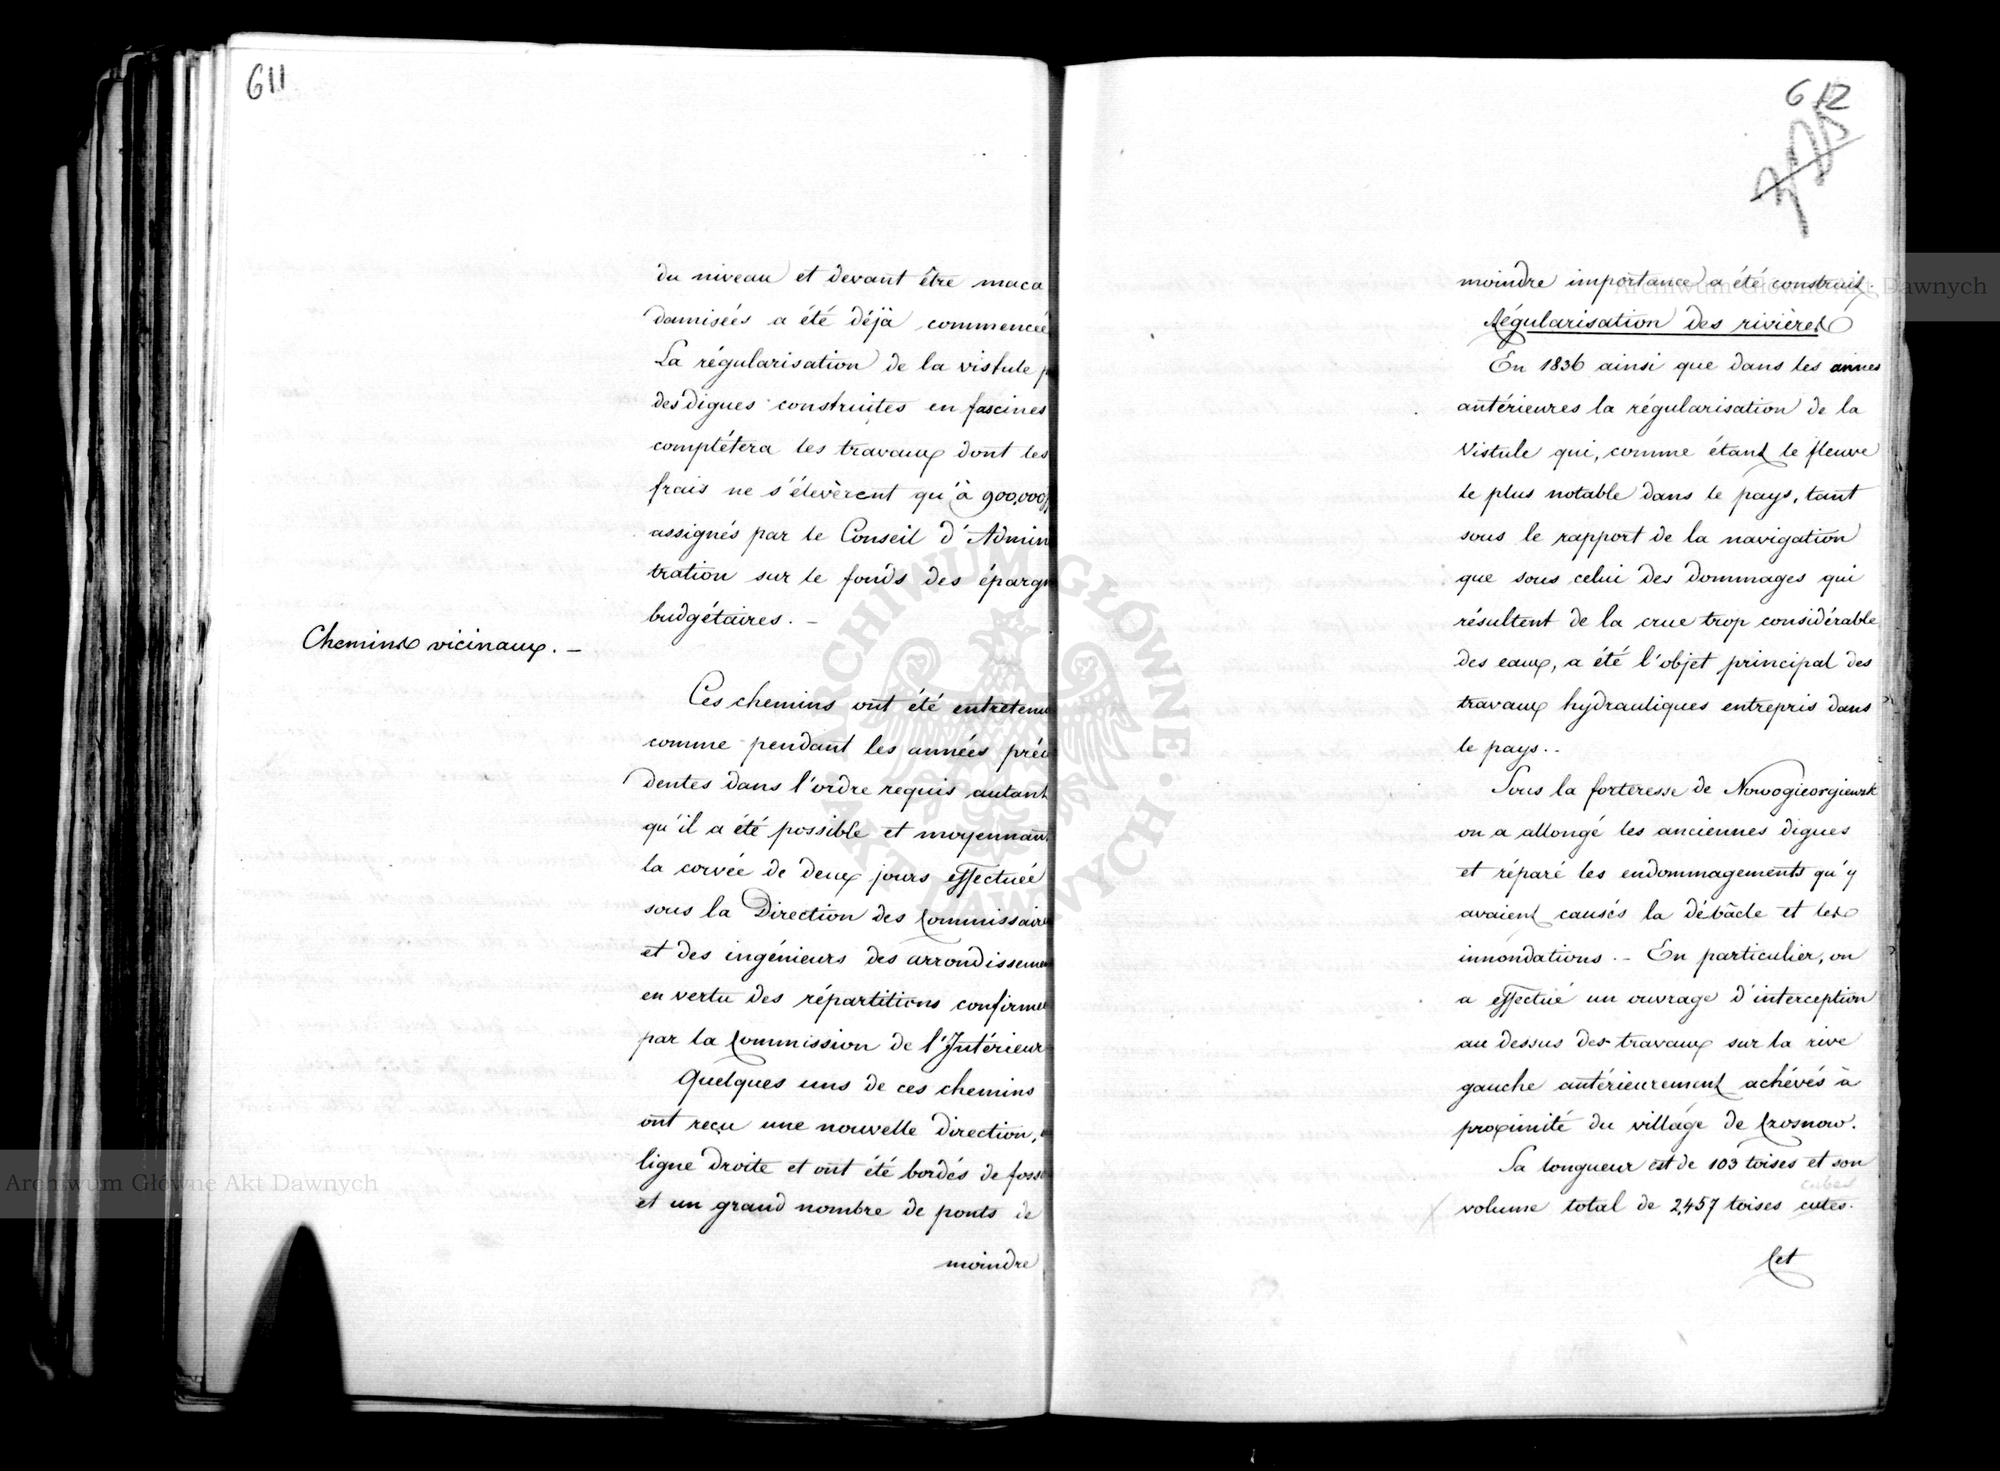 611
du niveau et devant être maca
damisées a été déjà commencée
La régularisation de la vistule p
des digues construites en fascines
complétera les travaux dont les
frais ne s'élevèrent qu'à 900,000
assignés par le Conseil d'Admin
tration sur le fonds des éparg
budgétaires. –
Chemins vicinaux. –
Ces chemins ont été entretenu
comme pendant les années préc
dentes dans l'ordre requis autant
qu'il a été possible et moyennan
la corvée de deux jours effectuée
sous la Direction des Commissaire
et des ingénieurs des arrondisseme
en vertu des répartitions confirmé
par la Commission de l'Intérieur
Quelques uns de ces chemins
ont reçu une nouvelle direction,
ligne droite et ont été bordés de foss
et un grand nombre de ponts de
moindre
612
moindre importance a été construit.
Régularisation des rivières
En 1836 ainsi que dans les annes
antérieures la régularisation de la
Vistule qui, comme étant le fleuve
le plus notable dans le pays, tant
sous le rapport de la navigation
que sous celui des dommages qui
résultent de la crue trop considérable
des eaux, a été l'objet principal des
travaux hydrauliques entrepris dans
le pays. -
Sous la forteresse de Nowogieorgiewsk
on a allongé les anciennes digues
et réparé les endommagements qu'y
avaient causés la débâcle et les
innondations. – En particulier, on
a effectué un ouvrage d'interception
au dessus des travaux sur la rive
gauche antérieurement achévés à
proximité du village de Crosnow.
Sa longueur est de 103 toises et son
cubes
volume total de 2,457 toises cutes.
Cet
Archiwum Główne Akt Dawnych
Archiwum Główne Akt Dawnych
ARCHIWUM GŁÓWNE · AKT DAWNYCH ·